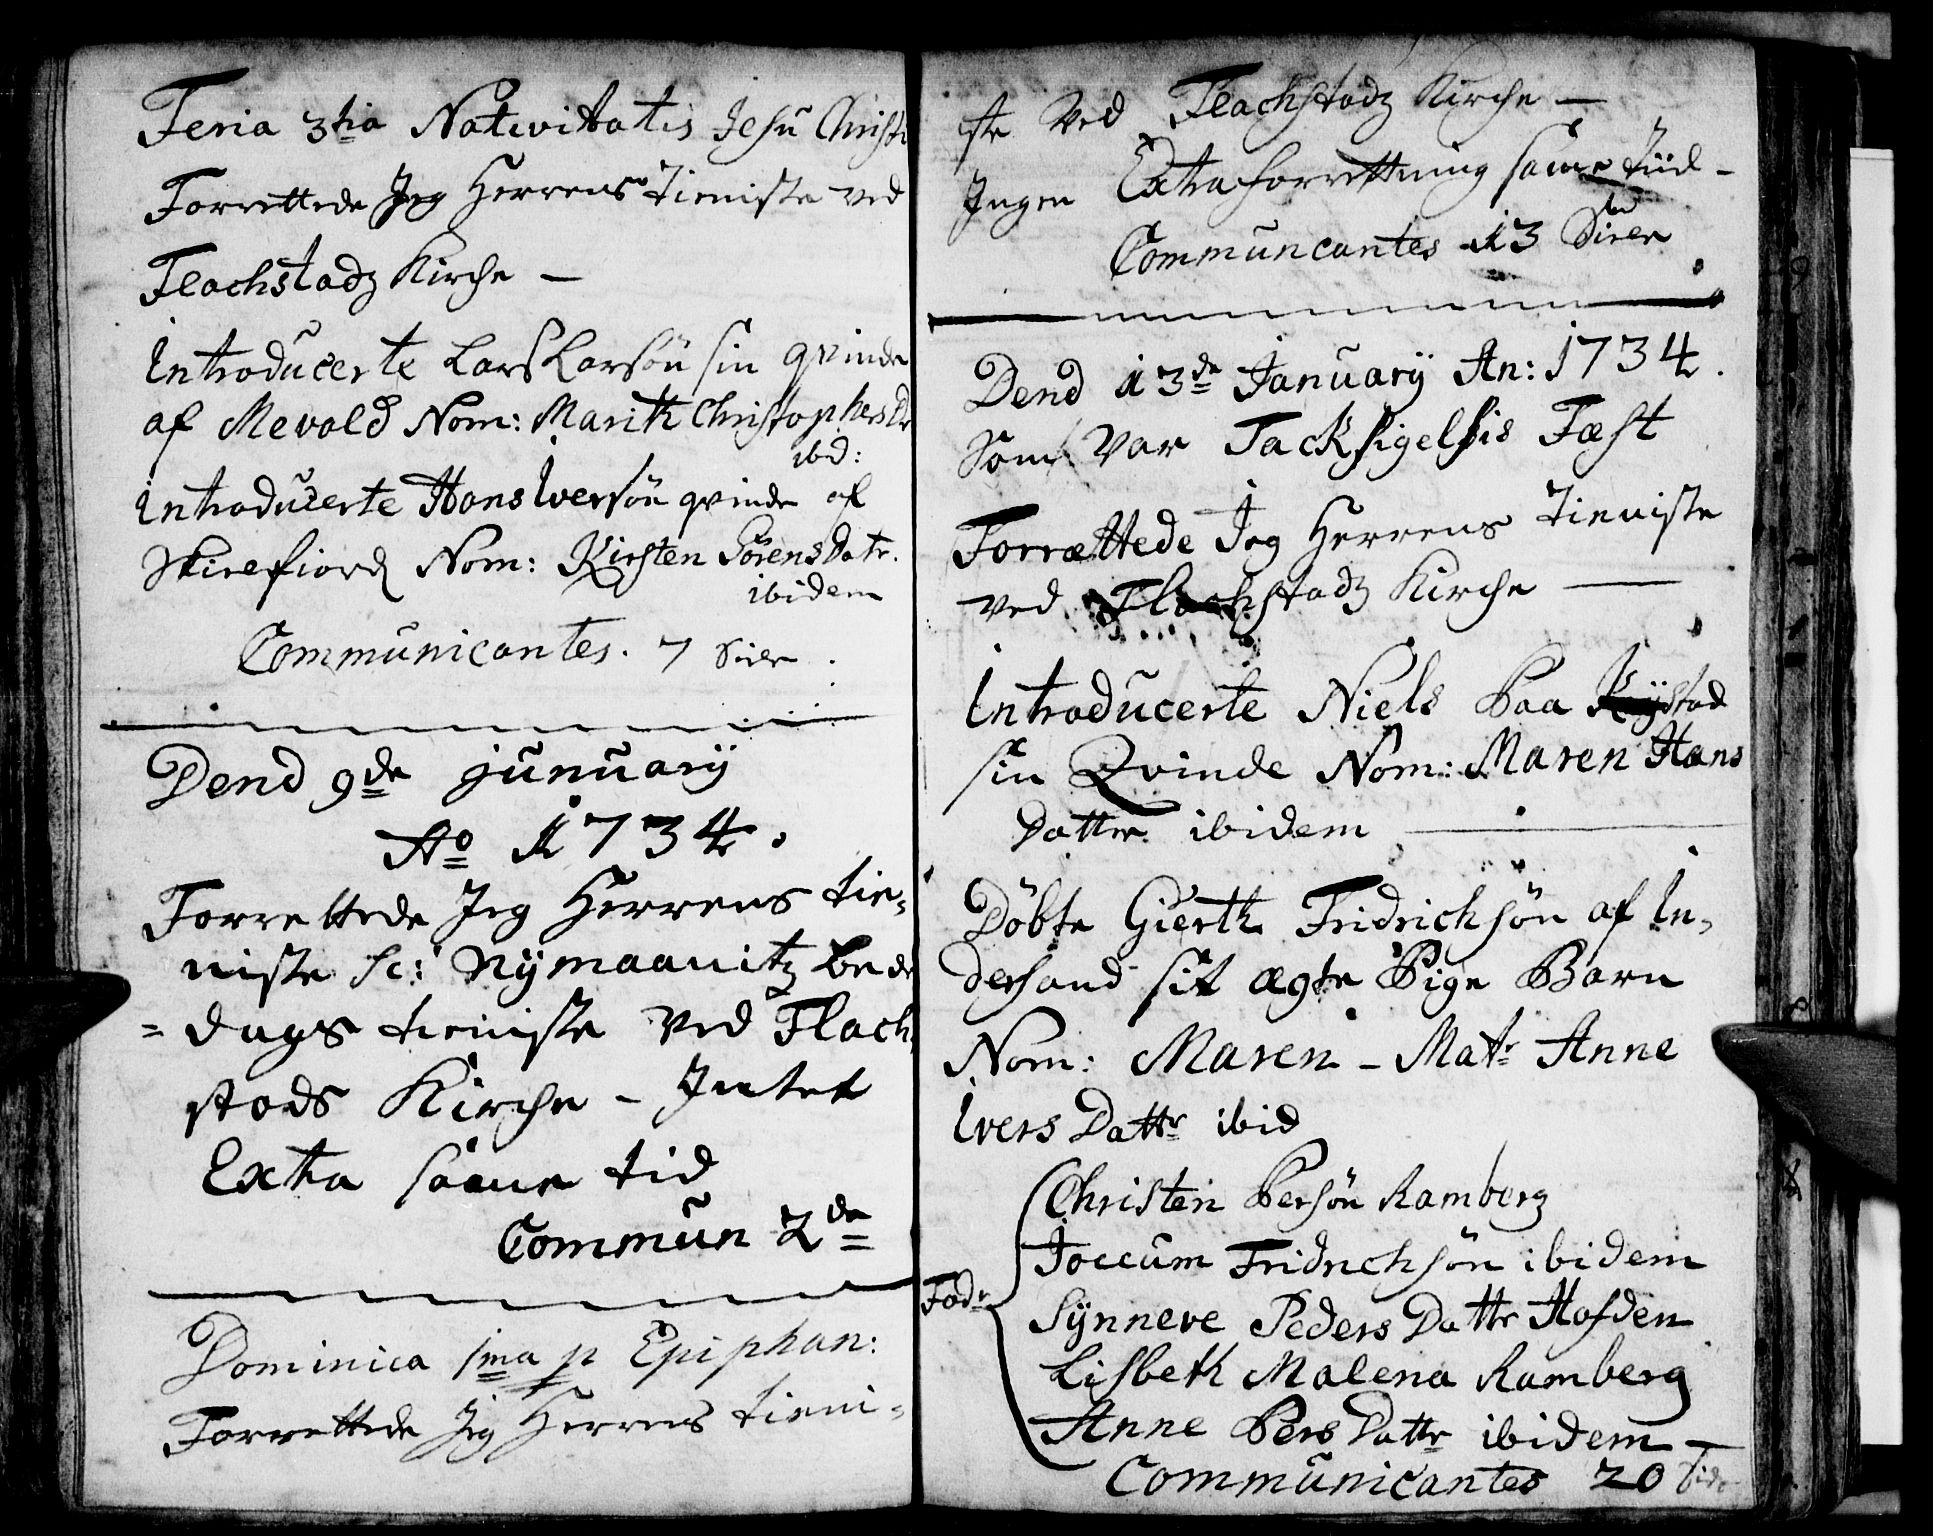 Feria 3tia Nativitatis Jesu Christi
Forrettede Jeg Herrens Tieniste ved
Flachstadz Kirche —
Introducerte Lars Larsøn sin qvinde
af Mevold Nom: Marith Christophers Dr
ibd:
Introducerte Hans Iversøn qvinde af
Skirefiord Nom: Kirsten Sörens Datr.
ibidem
Communicantes. 7 Siele.
Dend 9de januarÿ
Ao 1734.
Forrettede Jeg Herrens tie-
niste sc: Nÿmaanitz bede
=dags tieniste ved Flach
stads Kirche – Intet
Extra samme tid
Commun 2de
Dominica 1ma p Epiphan:
Forrettede Jeg Herrens tieni-
ste ved Flachstadz Kirche —
Ingen Extra forrettning samme tiid –
Communcantes 13 Siele
Dend 13de Januarÿ An: 1734.
Som var Tacksigelsis Fæst
Forrættede Jeg Herrens Tieniste
ved Flachstadz Kirche —
Introducerte Niels Paa stad
sin Qvinde Nom: Maren Hans
Datter ibidem
Döbte Gierth Fridrichsön af In-
dersand sit ægte Pige Barn
Nom: Maren – Matr Anne
Ivers Dattr ibid
Fadr
Christen Persön Ramberg
Joccum Fridrichsön ibidem
Sÿnneve Peders Dattr Hofden
Lisbeth Malena Ramberg
Anne Pers Dattr ibidem —
Communicantes 20 Siele